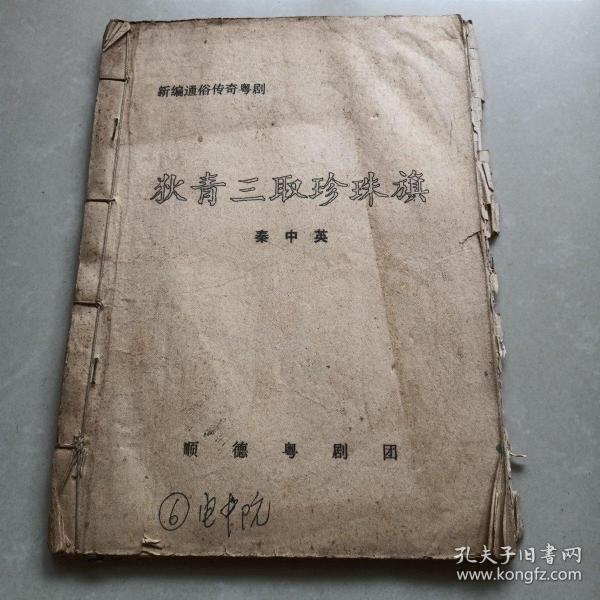 新编通俗传奇粤剧
狄青三取珍珠旗
秦中英
顺德粤剧团
⑥
孔夫子旧书网
www.kongfz.com